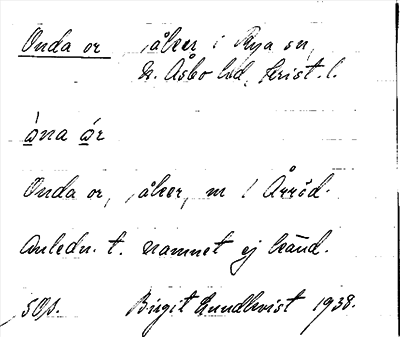 Onda or åker i Rya sn,
N. Åsbo hd, Krist. l.
òna ór
Onda or, åker, nr 1 Årröd.
Anledn. t. namnet ej känd.
50s. Birgit Lundkvist 1938.